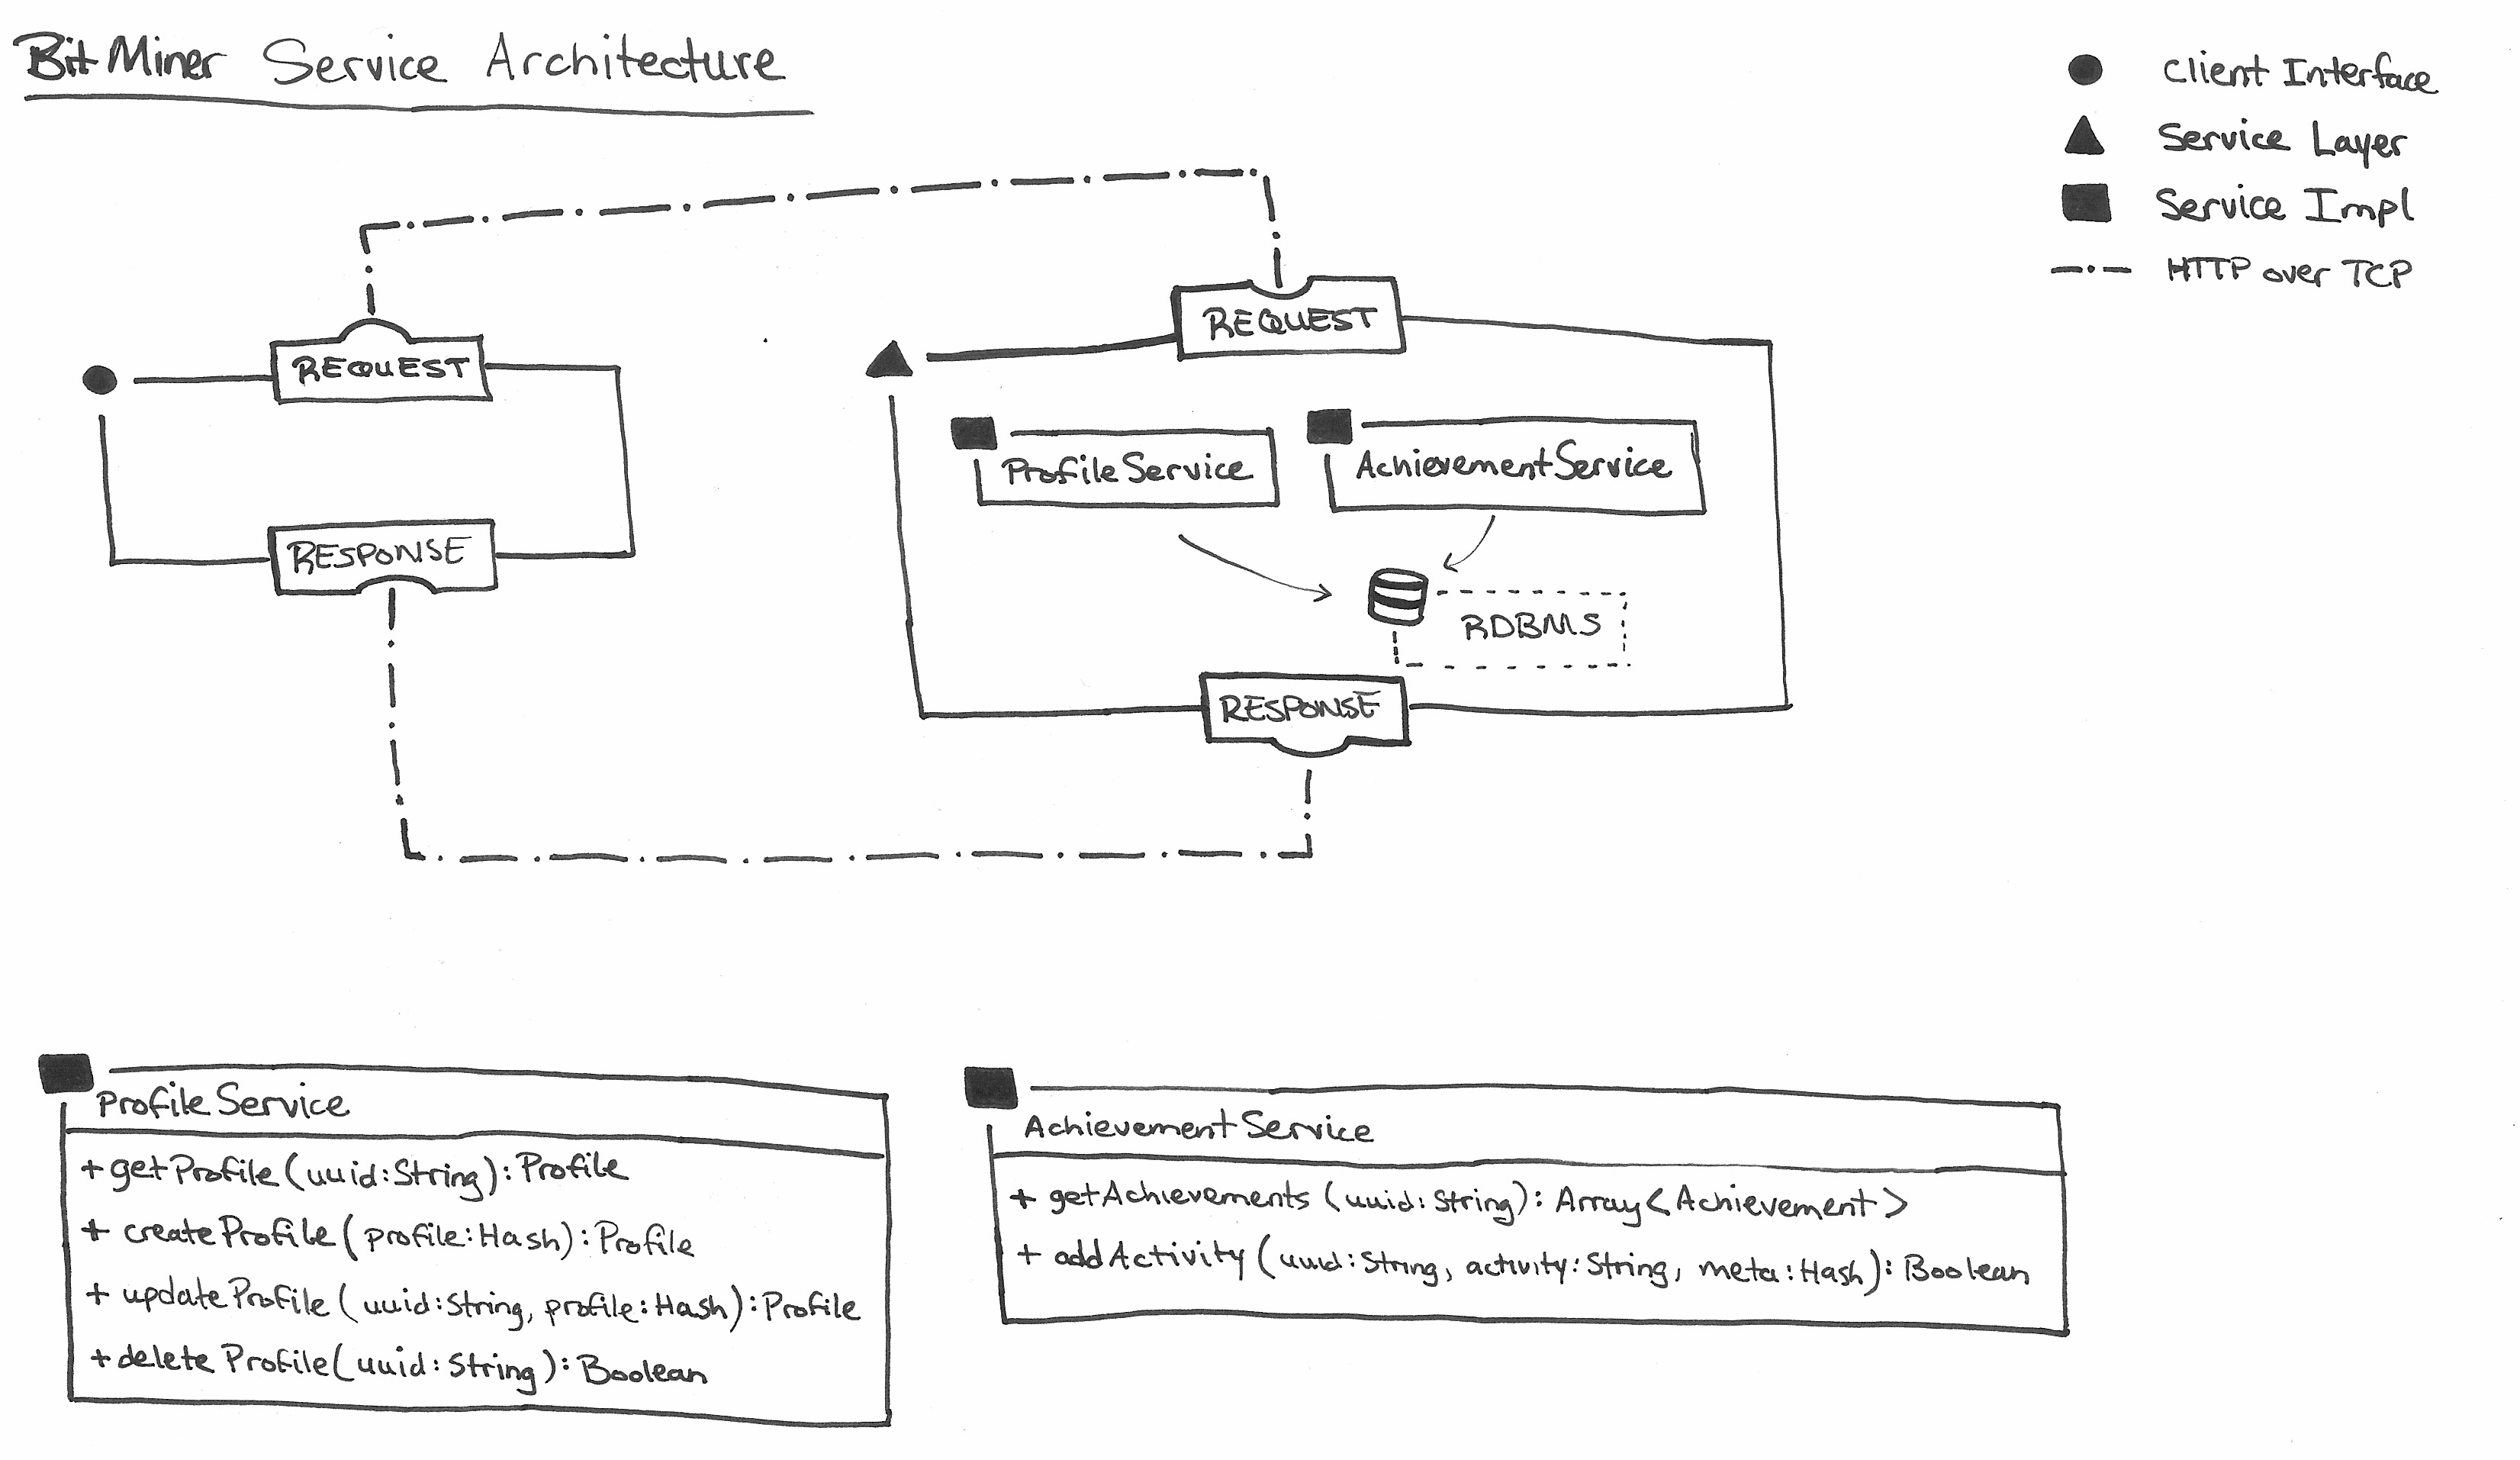 BitMiner Service Architecture
Client Interface
Service Layer
Service Impl
HTTP over TCP
REQUEST
RESPONSE
REQUEST
ProfileService
AchievementService
RDBMS
RESPONSE
ProfileService
+ getProfile(uuid:String): Profile
+ createProfile(profile:Hash): Profile
+ updateProfile(uuid:String, profile:Hash): Profile
+ deleteProfile(uuid:String): Boolean
AchievementService
+ getAchievements(uuid:String): Array<Achievement>
+ addActivity(uuid:String, activity:String, meta:Hash): Boolean